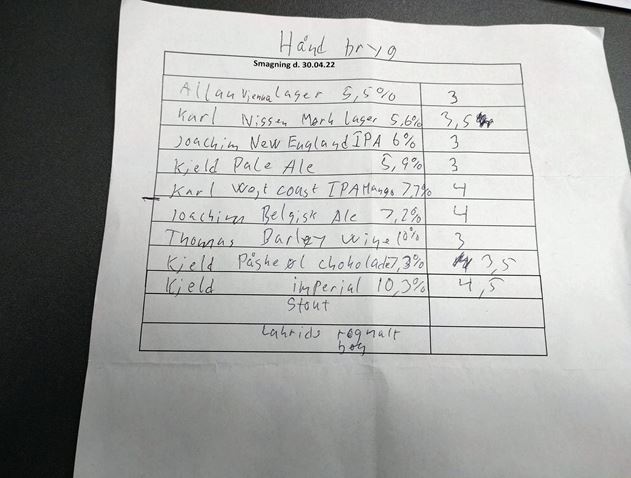 Hånd bryg
Smagning d. 30.04.22
Allan Vienna lager 5,5% 3
Karl Nissen Mørk Lager 5,6% 3,5
Joachim New England IPA 6% 3
Kjeld Pale Ale 5,9% 3
Karl West coast IPA Mango 7,7% 4
Joachim Belgisk Ale 7,2% 4
Thomas Barley Wine 10% 3
Kjeld Påske øl chokolade 7,3% 3,5
Kjeld imperial 10,3% 4,5
Stout
Lakrids røgmalt